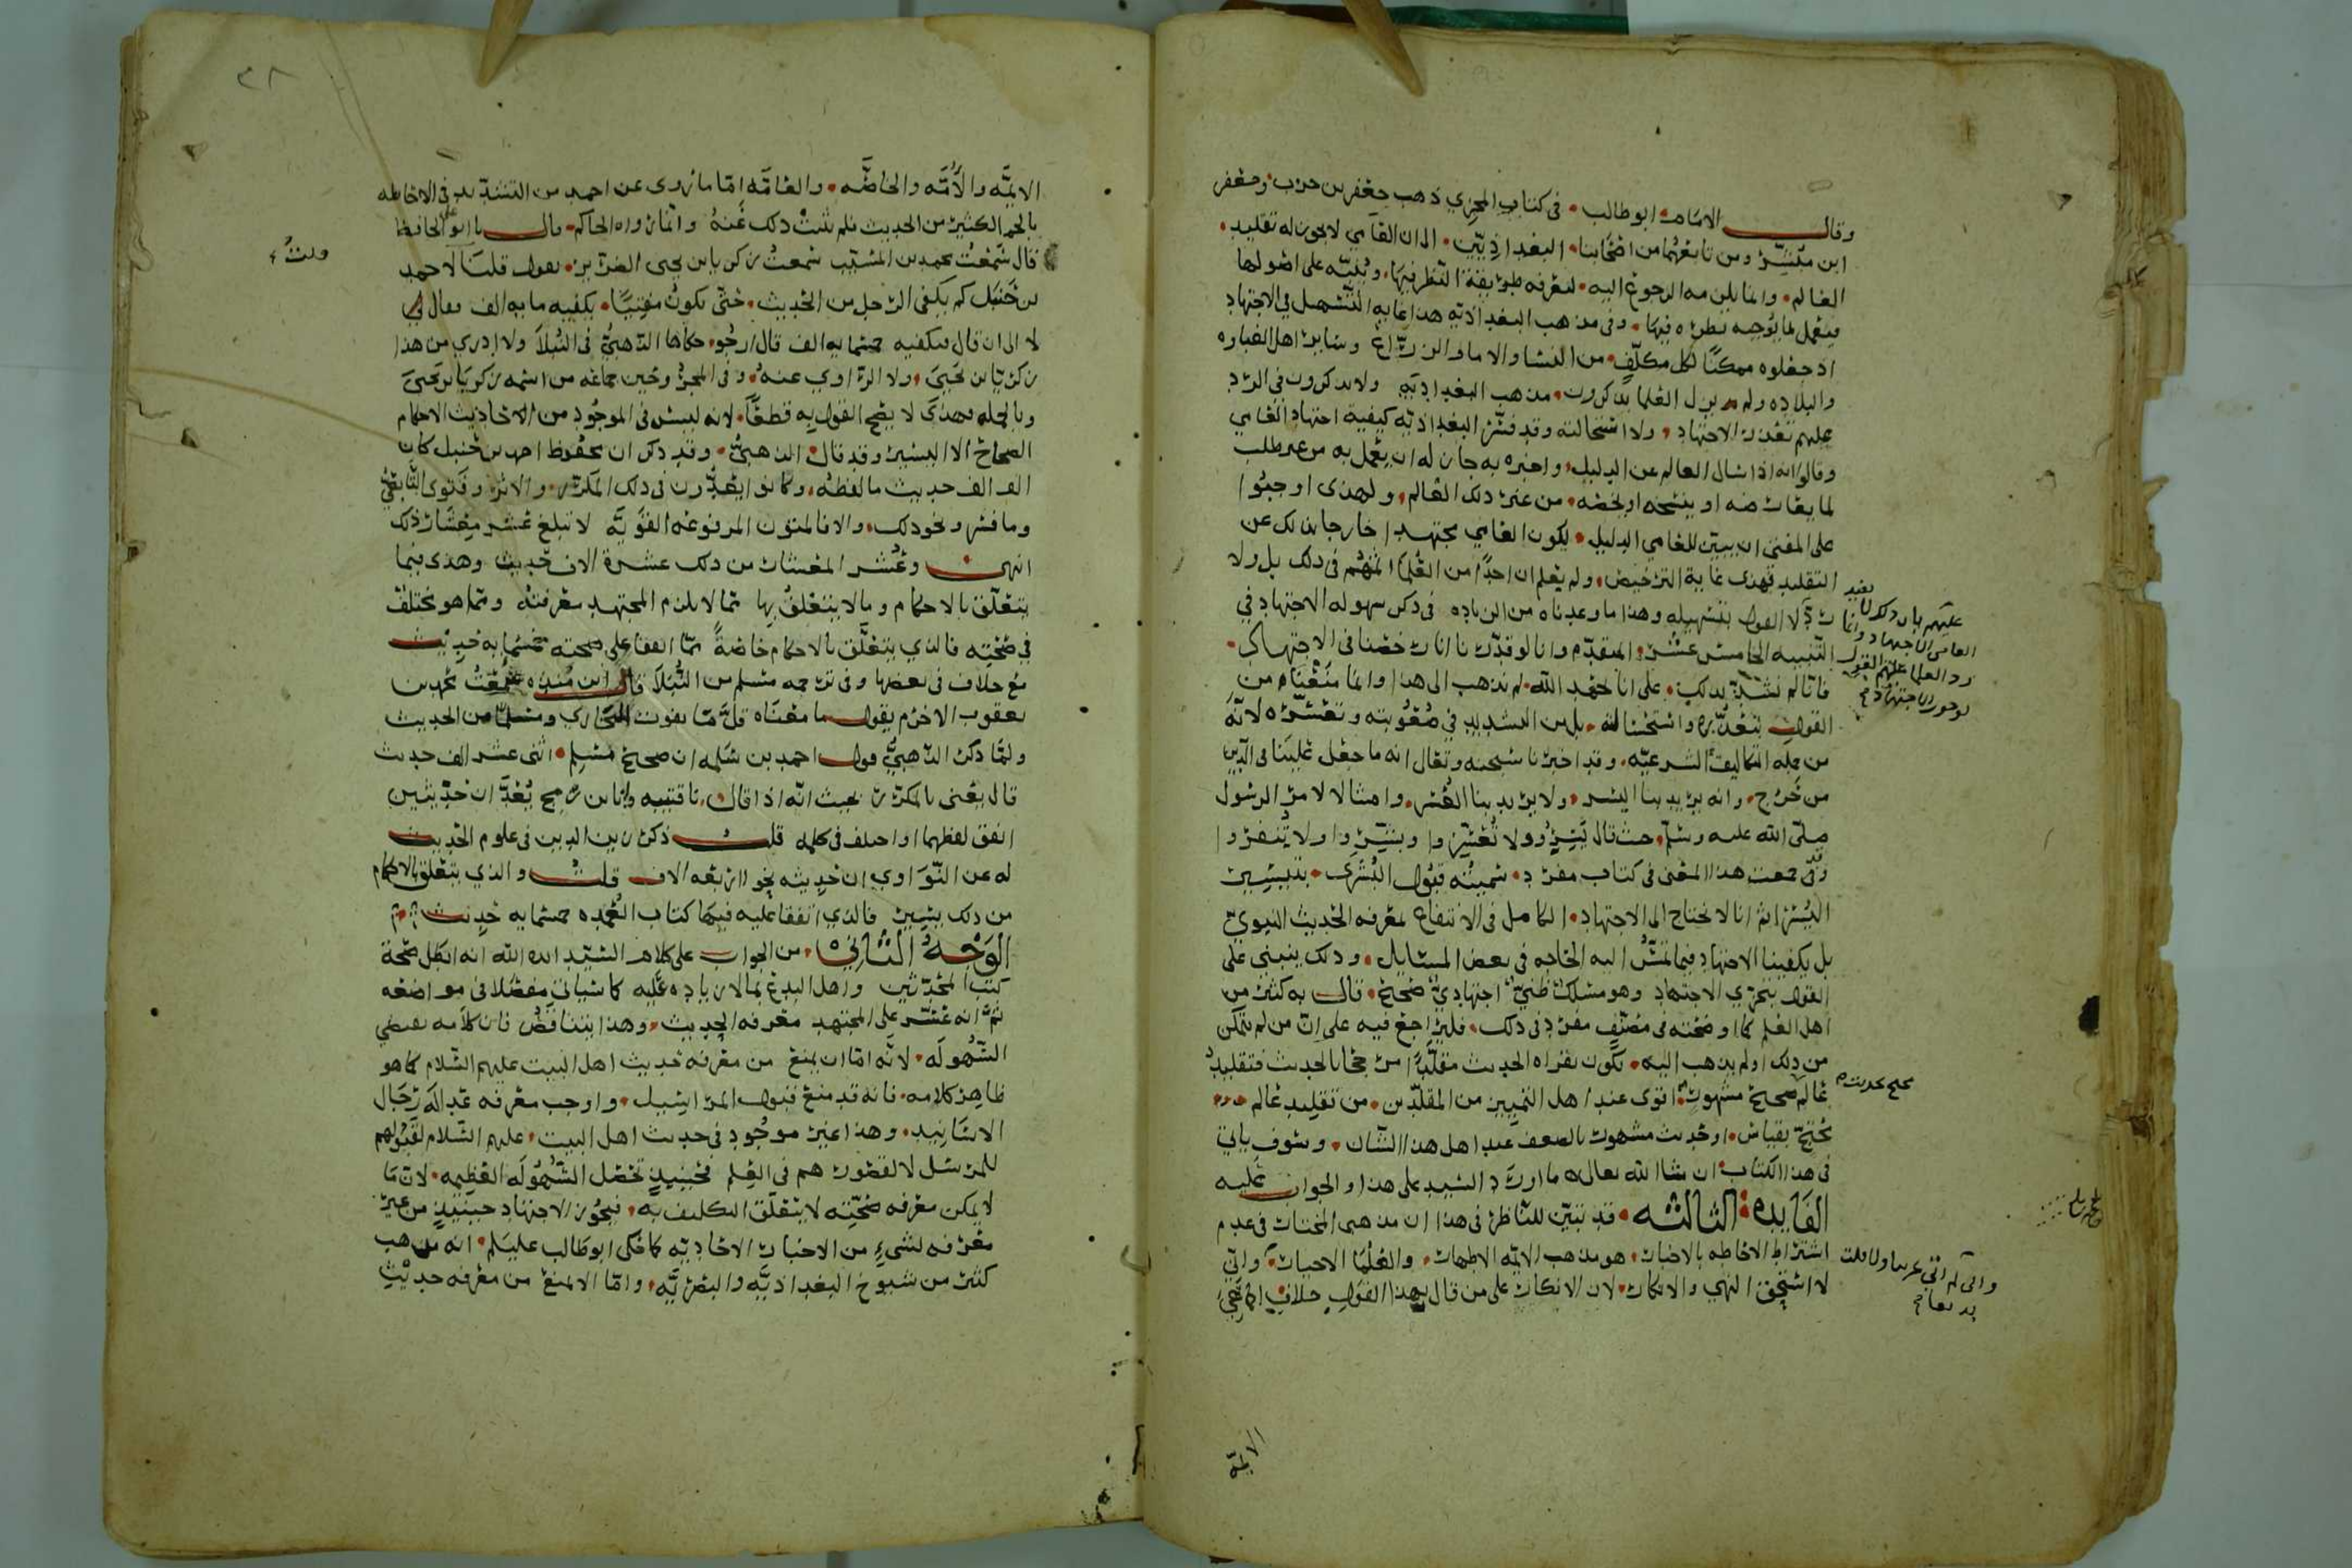 وقال الامام ابو طالب في كتاب المجزي ذهب جعفر بن حرب وجعفر
ابن مبشر ومن تابعهما من اصحابنا البغداذيين الى ان العامي لا يجوز له تقليد
العالم وانما يلزمه الرجوع اليه ليعرفه طريقة النظر فيها وينبه على اصولها
فيعمل بما يوجبه نظره فيها وفي مذهب البغداذية هذا غاية التسهيل في الاجتهاد
اذ جعلوه ممكنا لكل مكلف من النسا والاما والزراع وساير اهل الغباوه
والبلاده ولم يزل العلما يذكرون مذهب البغداذية ولا يذكرون في الرد
عليهم تعذر الاجتهاد ولا استحالته وقد فسر البغداذية كيفية اجتهاد العامي
وقالوا انه اذا سال العالم عن الدليل واخبره به جاز له ان يعمل به من غير طلب
لما يعارضه او ينسخه او يخصه من غير ذلك العالم ولهذى اوجبوا
على المفتي ان يبين للعامي الدليل ليكون العامي مجتهدا خارجا بذلك عن
التقليد فهذى غاية الترخيص ولم يعلم ان احدا من العلما اتهمهم في ذلك بل ولا
لا القول بتسهيله وهذا ما وعدناه من الزياده في ذكر سهولة الاجتهاد في
التنبيه الخامس عشر المتقدم وانا لو قدرنا انا رخصنا في الاجتهاد
فانا لم نشذ بذلك على انا بحمد الله لم نذهب الى هذا وانما منعنام من
القول بتعذره واستحالته بل من التشديد في صعوبته وتعسره لانه
من جملة التكاليف الشرعيه وقد اخبرنا سبحنه وتعالى انه ما جعل علينا في الدين
من حرج وانه يريد بنا اليسر ولا يريد بنا العسر وامتثالا لامر الرسول
صلى الله عليه وسلم حيث قال يسروا ولا تعسروا وبشروا ولا تنفروا
وقد جمعت هذا المعنى في كتاب مفرد سميته قبول البشرى بتيسير
اليسرى ثم انا لا نحتاج الى الاجتهاد الكامل في الانتفاع بمعرفه الحديث النبوي
بل يكفينا الاجتهاد فيما تمس اليه الحاجه في بعض المسايل وذلك ينبني على
القول بتجزي الاجتهاد وهو مسلك ظني اجتهادي صحيح قال به كثير من
اهل العلم كما اوضحته في مصنف مفرد في ذلك فليراجع فيه على ان من لم يتمكن
من ذلك او لم يذهب اليه يكون بقراه الحديث مقلدا مرجحا بالحديث فتقليد
عالم صحيح مشهور اقوى عند اهل التمييز من المقلدين من تقليد عالم
محتج بقياس او حديث مشهور بالضعف عند اهل هذا الشان وسوف ياتي
في هذا الكتاب ان شا الله تعالى ما اورد السيد على هذا والجواب عليه
الفايده الثالثه قد تبين للناظر في هذا ان مذهبي المختار في عدم
اشتراط الاحاطه بالاخبار هو مذهب الايمه الاطهار والعلما الاحبار واني
لا استحق النهي والانكار لان الانكار على من قال بهذا القول خلاف اجماعي
عليهم بان ذلك
العامي الاجتهاد
رد العلما عليهم القول
لوجوب الاجتهاد
محتج بحديث
واني لم اتي غريبا ولا قلت
بديعا
الايمه
٣٨
الايمه والأمه والخاصه والعامه اما ما روى عن احمد من التشديد في الاحاطه
بالجم الكثير من الحديث فلم يثبت ذلك عنه وانما رواه الحاكم قال نا ابو علي الحافظ
قال سمعت محمد بن المسيب سمعت زكريا بن يحيى الضرير يقول قلت لاحمد
بن حنبل كم يكفي الرجل من الحديث حتى يكون مفتيا يكفيه مايه الف فقال لي
لا الى ان قال فيكفيه خمسمايه الف قال ارجو حكاها الذهبي في النبلا ولا ادري من هذا
زكريا بن يحيى ولا الراوي عنه وفي المجروحين جماعه من اسمه زكريا بن يحيى
وبالجمله فهذى لا يصح القول به قطعا لانه ليس في الموجود من الاحاديث الاحكام
الصحاح الا اليسير وقد قال الذهبي وقد ذكر ان محفوظ احمد بن حنبل كان
الف الف حديث ما لفظه وكانوا يعدون في ذلك المكرر والاثر وفتوى التابعي
وما فسر ونحو ذلك والا فالمتون المرفوعه القويه لا تبلغ عشر معشار ذلك
انتهى وعشر المعشار من ذلك عشرة الاف حديث وهذى فيما
يتعلق بالاحكام وما لا يتعلق بها مما لا يلزم المجتهد معرفته ومما هو مختلف
في صحته فالذي يتعلق بالاحكام خاصة مما اتفقا على صحته خمسمايه حديث
مع خلاف في بعضها وفي ترجمه مسلم من النبلا قال ابن منده سمعت محمد بن
يعقوب الاخرم يقول ما معناه قل ما يفوت البخاري ومسلما من الحديث
ولما ذكر الذهبي قول احمد بن سلمه ان صحيح مسلم اثنى عشر الف حديث
قال يعني بالمكرر بحيث انه اذا قال نا قتيبه وانا ابن رمح يعدان حديثين
اتفق لفظهما او اختلف في كلمه قلت ذكر زين الدين في علوم الحديث
له عن النواوي ان حديثه نحو اربعه الاف قلت والذي يتعلق بالاحكام
من ذلك يسير فالذي اتفقا عليه فيها كتاب العمده خمسمايه حديث
الوجه الثاني من الجواب على كلام السيد ايده الله انه ابطل صحة
كتب المحدثين واهل البدع بما لا زياده عليه كما سياتي مفصلا في مواضعه
ثم انه عسر على المجتهد معرفه الحديث وهذا يتناقض فان كلامه يقضي
السهوله لانه اما ان يمنع من معرفه حديث اهل البيت عليهم السلام كما هو
ظاهر كلامه فانه قد منع قبول المراسيل واوجب معرفه عداله رجال
الاسانيد وهذا غير موجود في حديث اهل البيت عليهم السلام لقبولهم
للمرسل لا لقصورهم في العلم فحينيذ تحصل السهوله العظيمه لان ما
لا يمكن معرفه صحته لا يتعلق التكليف به فيجوز الاجتهاد حينيذ من غير
معرفه لشيء من الاخبار الاحاديه كما حكى ابو طالب عليلم انه مذهب
كثير من شيوخ البغداذيه والبصريه واما الا يمنع من معرفه حديث
قلت